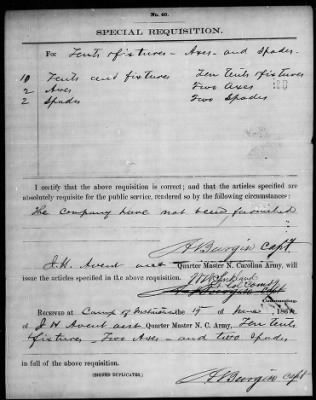 No. 40.
SPECIAL REQUISITION.
For Tents & fixtures – Axes – and Spades –
10 Tents and fixtures Ten Tents & fixtures
2 Axes Two Axes
2 Spades Two Spades
I certify that the above requisition is correct; and that the articles specified are
absolutely requisite for the public service, rendered so by the following circumstances:
The Company have not been furnished
Burgin Capt.
J. H. Avent asst Quarter Master N. Carolina Army, will
issue the articles specified in the above requisition.
Lt Col
Commanding.
Received at Camp of the 19 of June 186
of J H Avent asst Quarter Master N. C. Army, Ten Tents
& fixtures – Two Axes – and two Spades
in full of the above requisition.
(SIGNED DUPLICATES.)
Burgin Capt